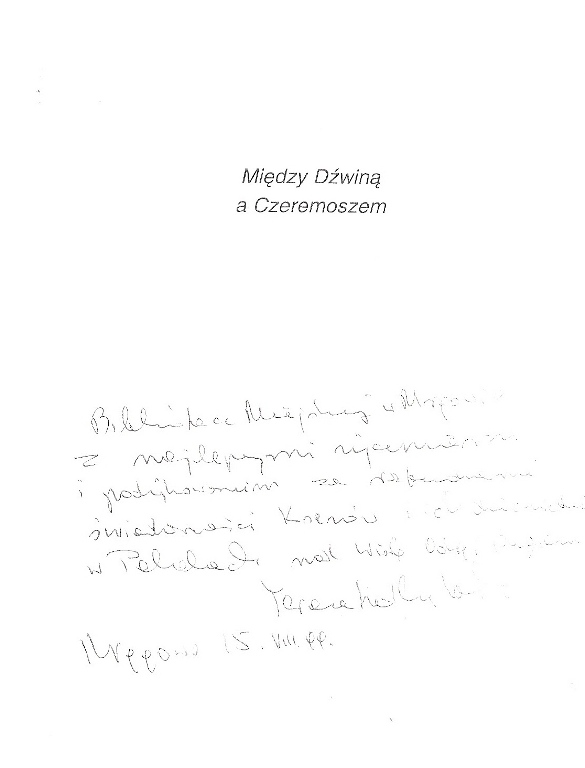 Między Dźwiną
a Czeremoszem
Bibliotece Miejskiej w Mrągowie
z najlepszymi życzeniami
i podziękowaniem za
świadomości Kresów i ich
w Polakach nad Wisłą Odrą
Teresa
Mrągowo 15.VIII.99.